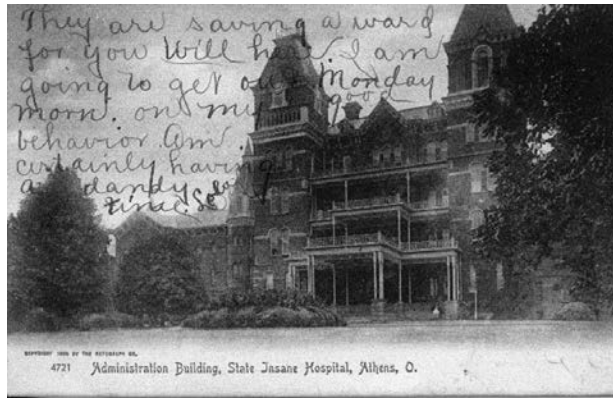 They are saving a ward
for you Will here. I am
going to get out Monday
morn. on my good
behavior. Am
certainly having
a dandy
time.
COPYRIGHT 1905 BY THE ROTOGRAPH CO.
4721 Administration Building, State Insane Hospital, Athens, O.